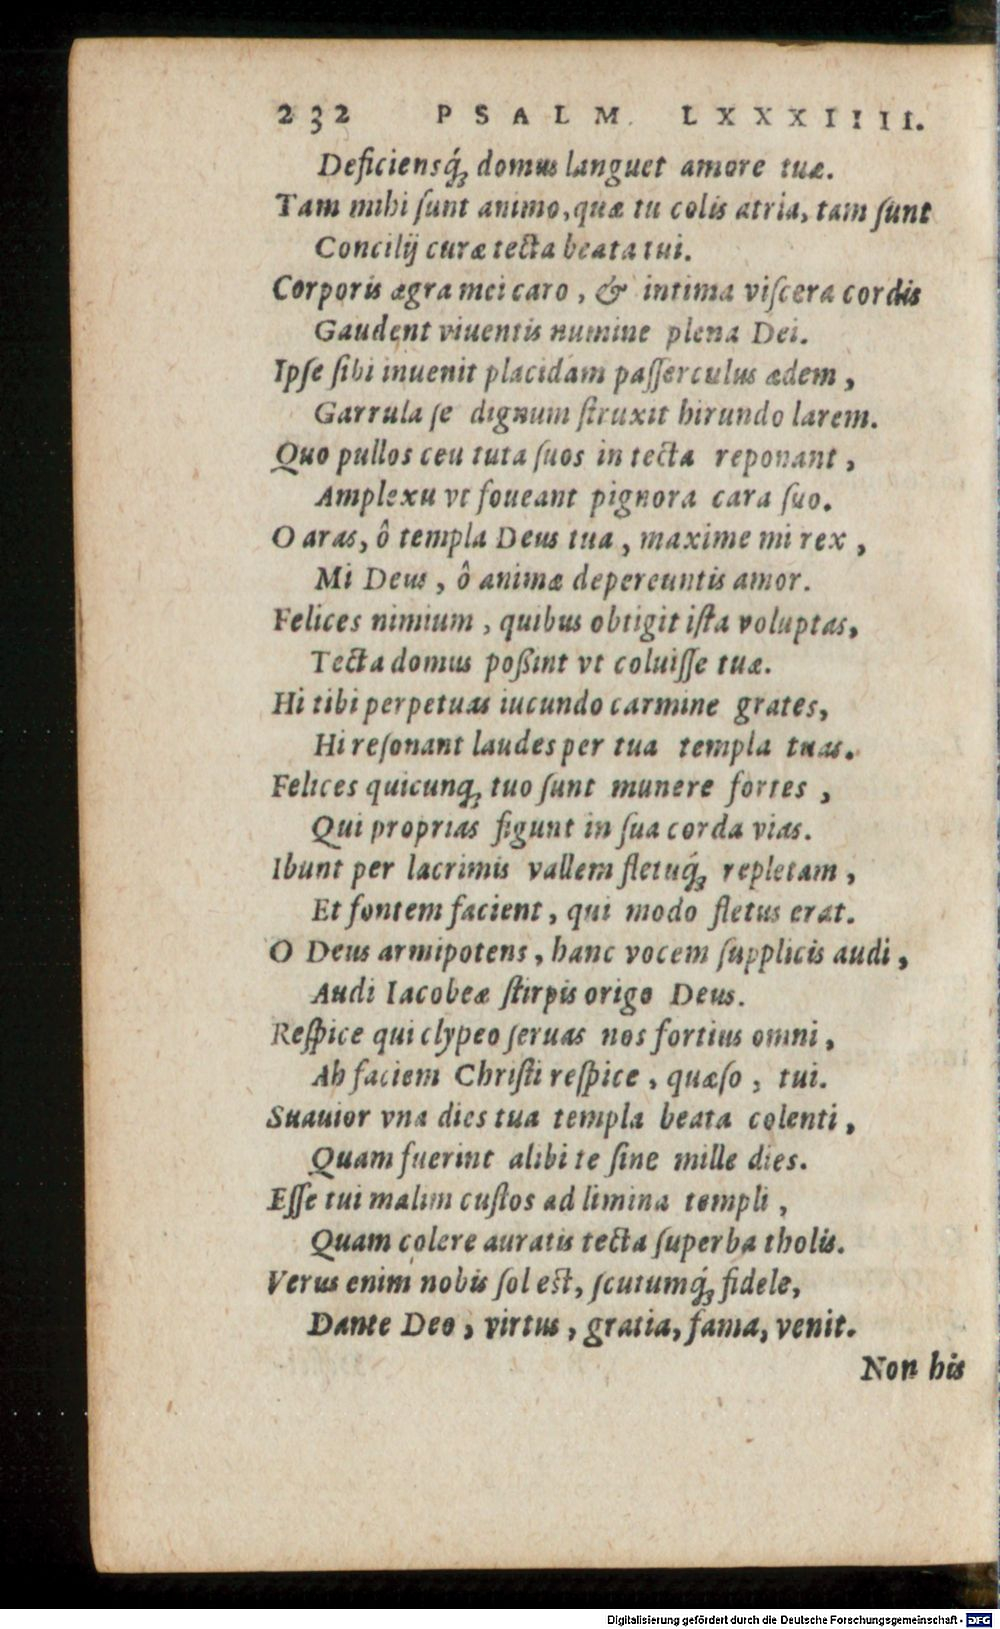 232 PSALM. LXXXIIII.
Deficiensq́; domus languet amore tuæ.
Tam mihi ſunt animo, quæ tu colis atria, tam ſunt
Concilij curæ tecta beata tui.
Corporis ægra mei caro, & intima viſcera cordis
Gaudent viuentis numine plena Dei.
Ipſe ſibi inuenit placidam paſſerculus ædem,
Garrula ſe dignum ſtruxit hirundo larem.
Quo pullos ceu tuta ſuos in tecta reponant,
Amplexu vt foueant pignora cara ſuo.
O aras, ô templa Deus tua, maxime mi rex,
Mi Deus, ô animæ depereuntis amor.
Felices nimium, quibus obtigit iſta voluptas,
Tecta domus poßint vt coluiſſe tuæ.
Hi tibi perpetuas iucundo carmine grates,
Hi reſonant laudes per tua templa tuas.
Felices quicunq; tuo ſunt munere fortes,
Qui proprias figunt in ſua corda vias.
Ibunt per lacrimis vallem fletuq́; repletam,
Et fontem facient, qui modo fletus erat.
O Deus armipotens, hanc vocem ſupplicis audi,
Audi Iacobeæ ſtirpis origo Deus.
Reſpice qui clypeo ſeruas nos fortius omni,
Ah faciem Chriſti reſpice, quæſo, tui.
Suauior vna dies tua templa beata colenti,
Quam fuerint alibi te ſine mille dies.
Eſſe tui malim cuſtos ad limina templi,
Quam colere auratis tecta ſuperba tholis.
Verus enim nobis ſol eſt, ſcutumq́; fidele,
Dante Deo, virtus, gratia, fama, venit.
Non his
Digitalisierung gefördert durch die Deutsche Forschungsgemeinschaft - DFG